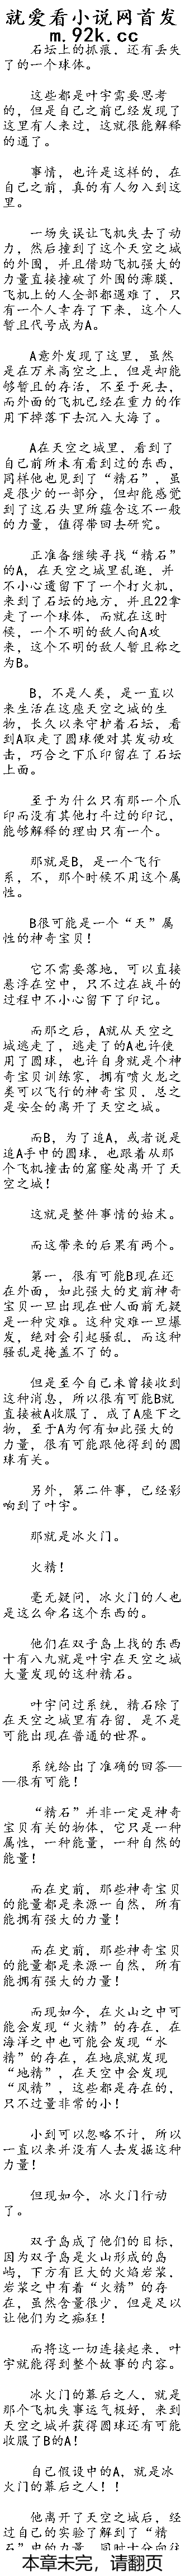 就爱看小说网首发
m.92k.cc
石坛上的抓痕，还有丢失
了的一个球体。
这些都是叶宇需要思考
的，但是自己之前已经发现了
这里有人来过，这就很能解释
的通了。
事情，也许是这样的，在
自己之前，真的有人勿入到这
里。
一场失误让飞机失去了动
力，然后撞到了这个天空之城
的外围，并且借助飞机强大的
力量直接撞破了外围的薄膜，
飞机上的人全部都遇难了，只
有一个人幸存了下来，这个人
暂且代号成为A。
A意外发现了这里，虽然
是在万米高空之上，但是却能
够暂且的存活，不至于死去，
而外面的飞机已经在重力的作
用下掉落下去沉入大海了。
A在天空之城里，看到了
自己前所未有看到过的东西，
同样他也见到了“精石”，虽
是很少的一部分，但却能感觉
到了这石头里所蕴含这不一般
的力量，值得带回去研究。
正准备继续寻找“精石”
的A，在天空之城里乱逛，并
不小心遗留下了一个打火机，
来到了石坛的地方，并且22拿
走了一个球体，而就在这时
候，一个不明的敌人向A攻
来，这个不明的敌人暂且称之
为B。
B，不是人类，是一直以
来生活在这座天空之城的生
物，长久以来守护着石坛，看
到A取走了圆球便对其发动攻
击，巧合之下爪印留在了石坛
上面。
至于为什么只有那一个爪
印而没有其他打斗过的印记，
能够解释的理由只有一个。
那就是B，是一个飞行
系，不，那个时候不用这个属
性。
B很可能是一个“天”属
性的神奇宝贝！
它不需要落地，可以直接
悬浮在空中，只不过在战斗的
过程中不小心留下了印记。
而那之后，A就从天空之
城逃走了，逃走了的A也许使
用了圆球，也许自身就是个神
奇宝贝训练家，拥有喷火龙之
类可以飞行的神奇宝贝，总之
是安全的离开了天空之城。
而B，为了追A，或者说是
追A手中的圆球，也跟着从那
个飞机撞击的窟窿处离开了天
空之城！
这就是整件事情的始末。
而这带来的后果有两个。
第一，很有可能B现在还
在外面，如此强大的史前神奇
宝贝一旦出现在世人面前无疑
是一种灾难。这种灾难一旦爆
发，绝对会引起骚乱，而这种
骚乱是掩盖不了的。
但是至今自己未曾接收到
这种消息，所以很有可能B就
直接被A收服了，成了A座下之
物，至于A为何有如此强大的
力量，很有可能跟他得到的圆
球有关。
另外，第二件事，已经影
响到了叶宇。
那就是冰火门。
火精！
毫无疑问，冰火门的人也
是这么命名这个东西的。
他们在双子岛上找的东西
十有八九就是叶宇在天空之城
大量发现的这种精石。
叶宇问过系统，精石除了
在天空之城里有存留，是不是
可能出现在普通的世界。
系统给出了准确的回答—
—很有可能！
“精石”并非一定是神奇
宝贝有关的物体，它只是一种
属性，一种能量，一种自然的
能量！
而在史前，那些神奇宝贝
的能量都是来源一自然，所有
能拥有强大的力量！
而在史前，那些神奇宝贝
的能量都是来源一自然，所有
能拥有强大的力量！
而现如今，在火山之中可
能会发现“火精”的存在，在
海洋之中也可能会发现“水
精”的存在，在地底就发现
“地精”，在天空中会发现
“风精”，这些都是存在的，
只不过量非常的小！
小到可以忽略不计，所以
一直以来并没有人去发掘这种
力量！
但现如今，冰火门行动
了。
双子岛成了他们的目标，
因为双子岛是火山形成的岛
屿，下方有巨大的火焰岩浆，
岩浆之中有着“火精”的存
在，虽然含量很少，但是足以
让他们为之痴狂！
而将这一切连接起来，叶
宇就能得到整个故事的内容。
冰火门的幕后之人，就是
那个飞机失事运气极好，来到
天空之城并获得圆球还有可能
收服了B的A！
自己假设中的A，就是冰
火门的幕后之人！！
他离开了天空之城后，经
过自己的实验了解到了“精
本章未完，请翻页